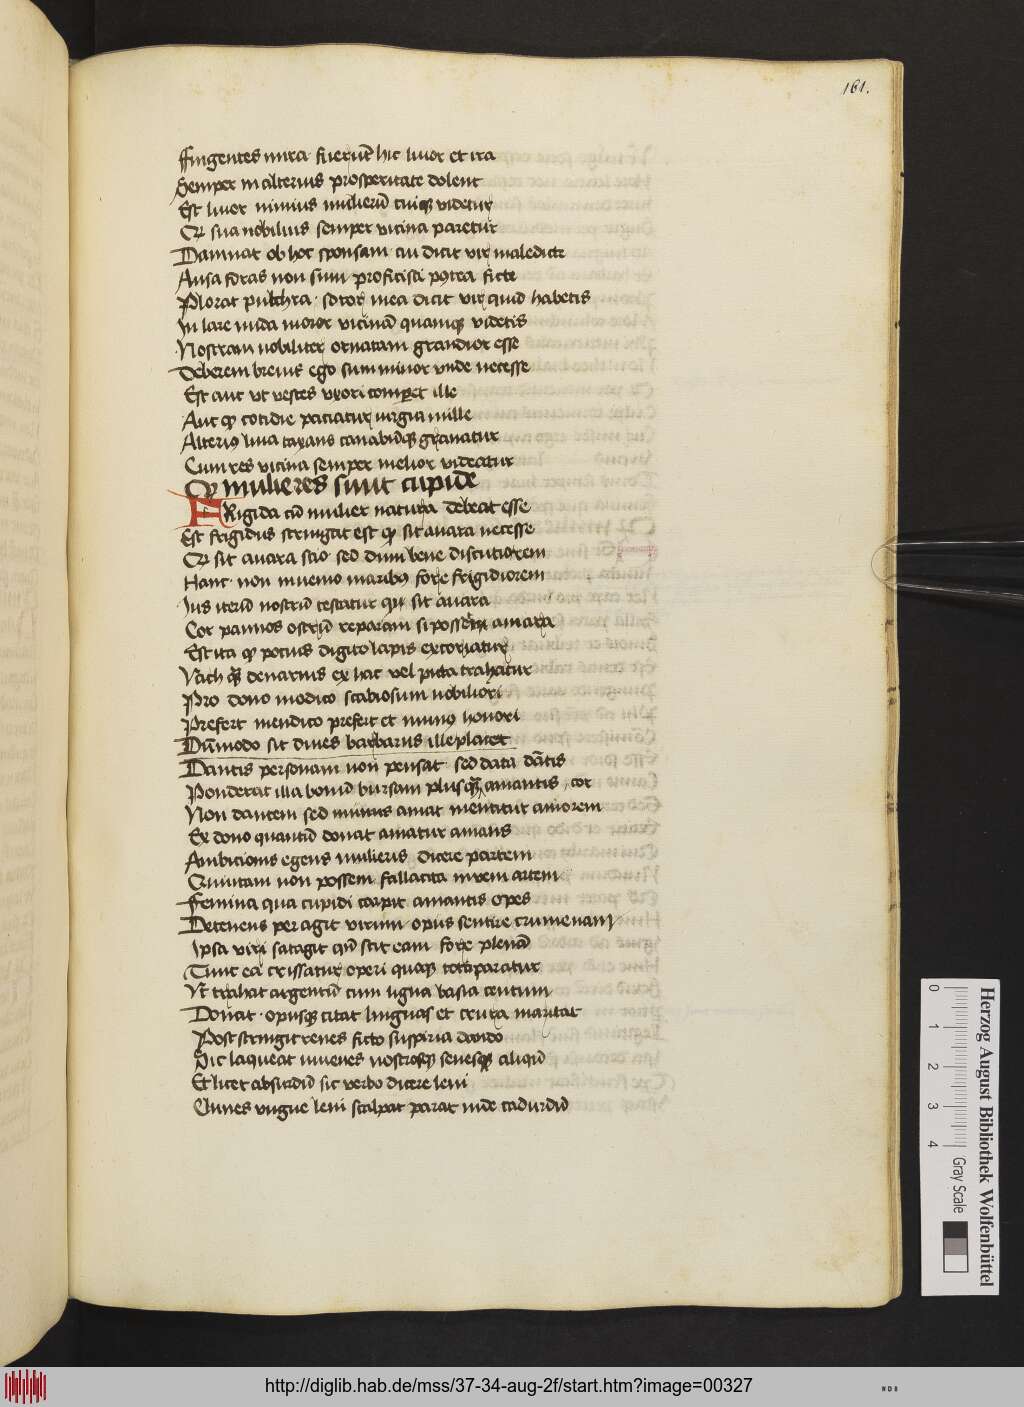 161.
Fingentes mira fuerūt hic livor et ira
Semper in alterius prosperitate dolent
Est livor nimius mulierū cuiqꝫ videtur
Qꝫ sua nobilius semper vicina paretur
Damnat ob hoc sponsam cui dicit vir maledicte
Ausa foras non sum proficisci picta ficte
Plorat pulchra soror mea dicit vir quid habetis
In lare nuda moror vicinā quamqꝫ videtis
Nostram nobiliter ornatam grandior esse
Deberem brevis ego sum minor unde necesse
Est aut ut vestes uxori comparet ille
Aut qꝫ cotidie paciatur iurgia mille
Alteriꝰ lina taxans
Cum res vicina semper melior videatur
Qꝫ mulieres sunt cupide
FRigida cū mulier natura debeat esse
Est frigidus stringat est qꝫ sit avara necesse
Qꝫ sit avara scio sed dum bene discutiorem
Hanc non invenio maribꝰ fore frigidiorem
Ius iterū nostrū testatur qꝫ sit avara
Cor pannos ostrū reparam si possem amara
Est ita qꝫ pocius digito lapis excoriatur
denarius ex hac vel picta trahatur
Pro dono modico scabiosum nobiliori
Prefert mendico prefert et munꝰ honori
Dūmodo sit dives barbarus ille placet
Dantis personam non pensat sed data dātis
Ponderat illa bonū bursam plusqꝫ amantis cor
Non dantem sed munus amat mentitur amorem
Ex dono quantū donat amatur amans
Ambicionis egens mulieris dicere partem
non possem fallacita
Femina qua cupidi carpit amantis opes
Detenens per agit virum opus sentire crumenam
Ipsa viri satagit qn̄ scit eam fore plenā
Tunc ea crissatur operi quoqꝫ
Ut trahat argentū cum ligua basia centum
Donat opusqꝫ citat linguas et crura maritat
Post stringit renes ficto suspiria dando
Sic laqueat iuvenes nostrosqꝫ senesqꝫ aliqn̄
Et licet absurdū sit verbo dicere leni
Omnes ungue leni scalpat parat inde cadurdū
Herzog August Bibliothek Wolfenbüttel
0 1 2 3 4 Gray Scale
http://diglib.hab.de/mss/37-34-aug-2f/start.htm?image=00327